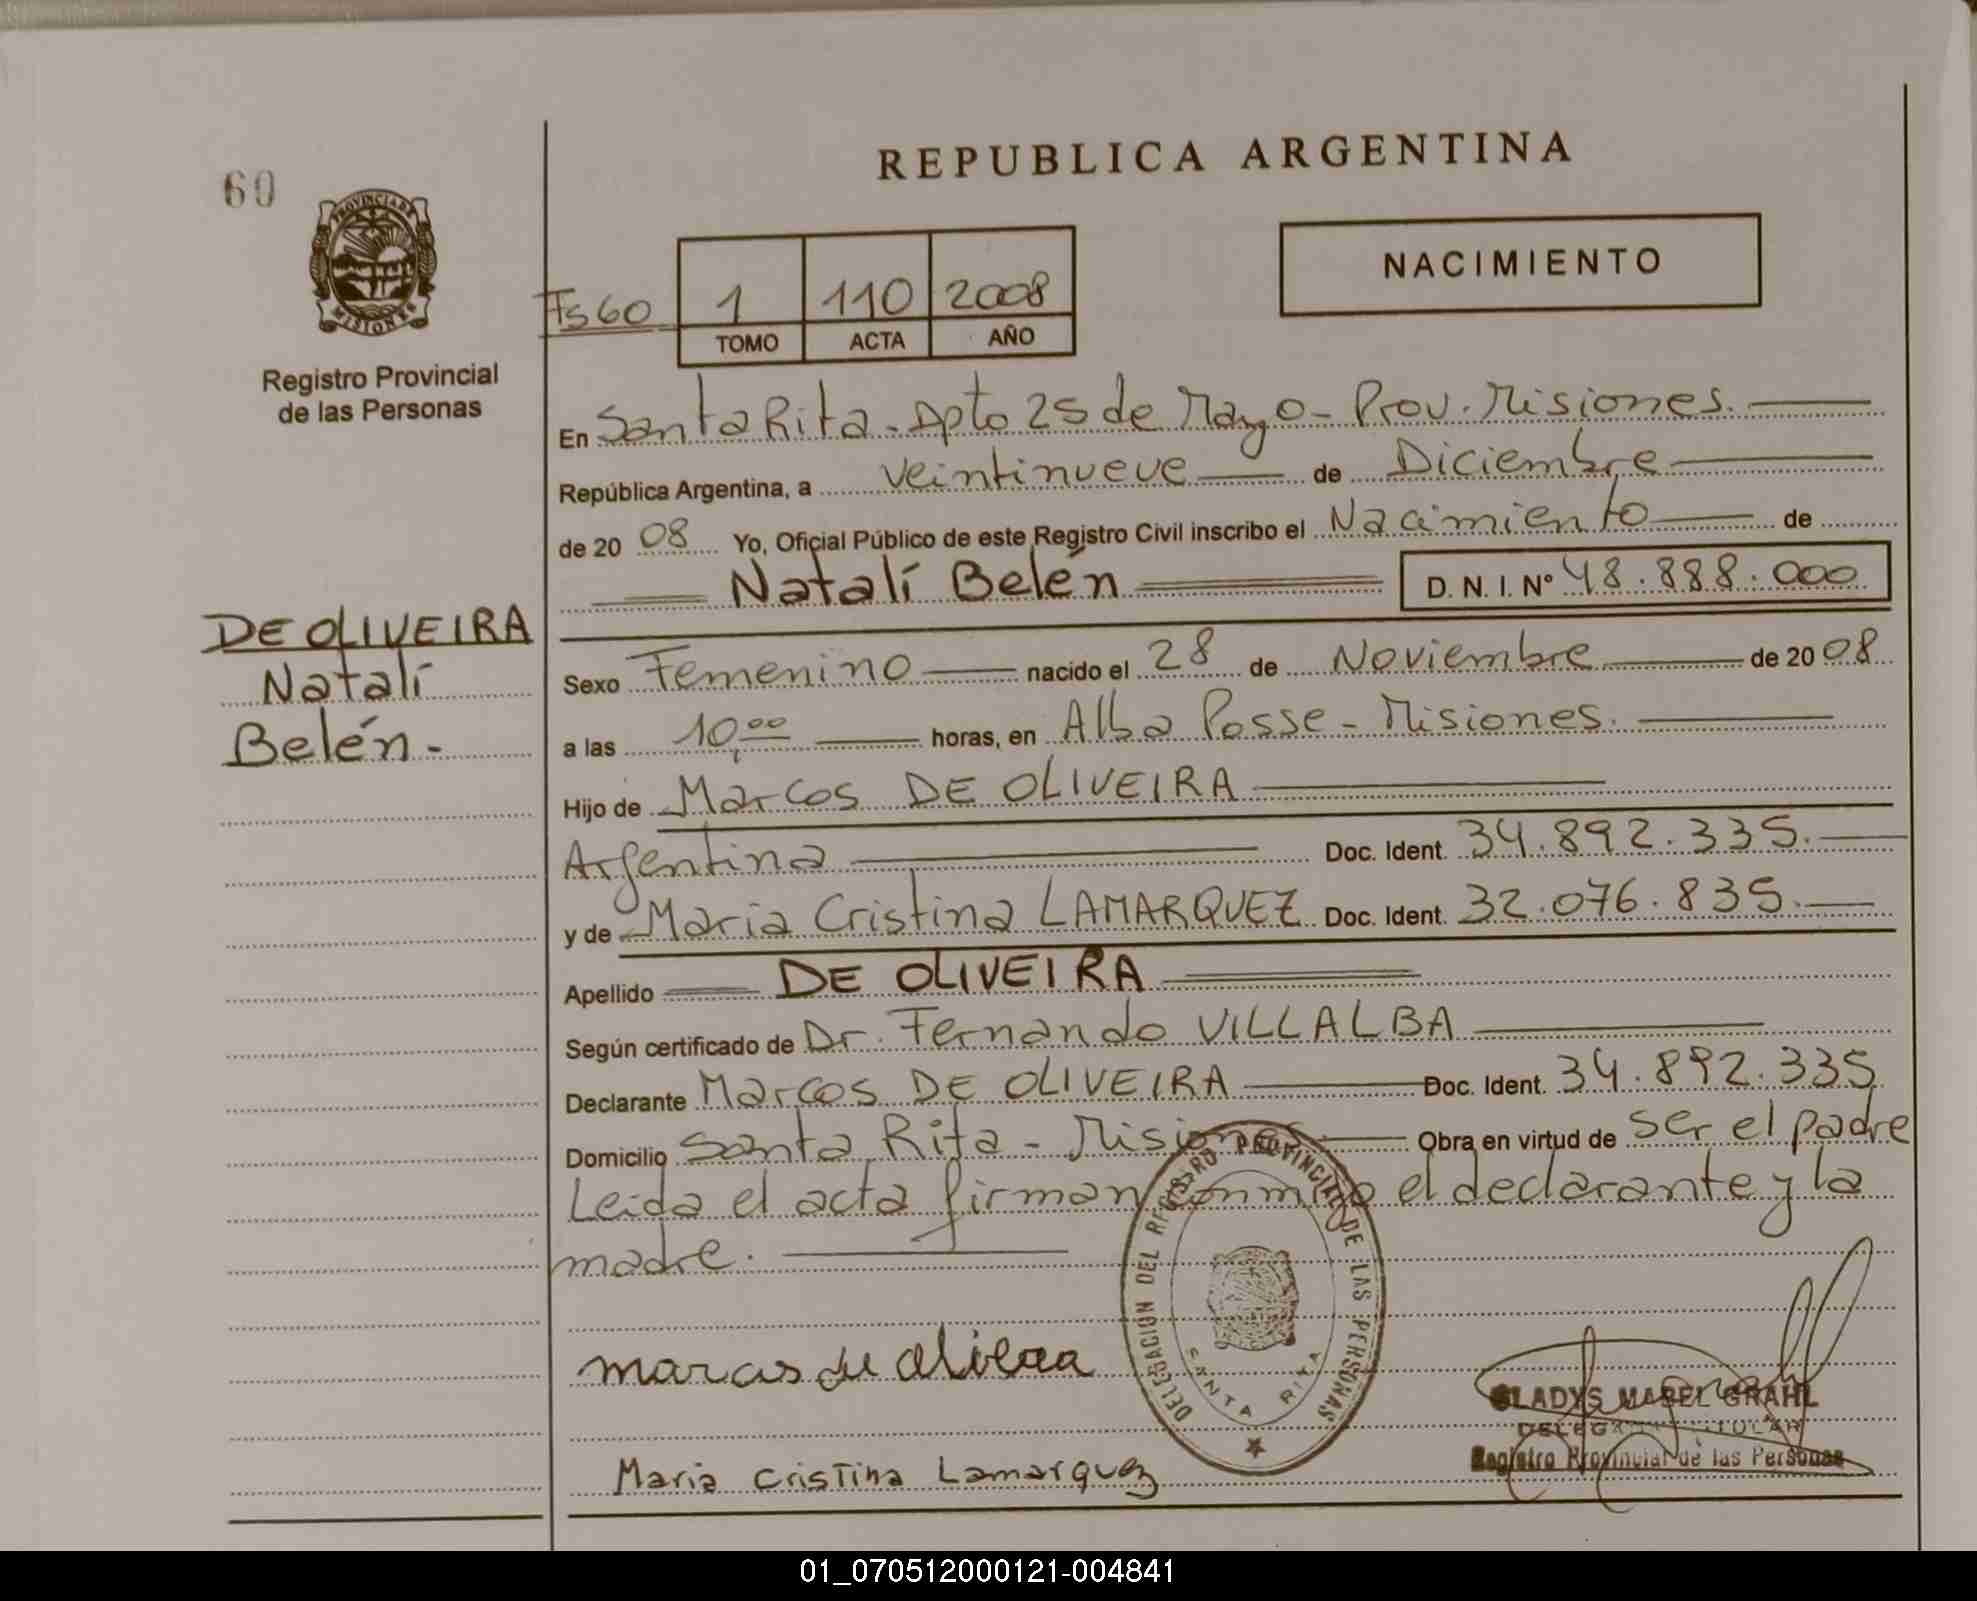 REPUBLICA ARGENTINA
60
PROVINCIA DE
MISIONES
Registro Provincial
de las Personas
NACIMIENTO
Fs 60
1 110 2008
TOMO ACTA AÑO
En Santa Rita - Dpto 25 de Mayo - Prov. Misiones.
República Argentina, a veintinueve de Diciembre
de 20 08 Yo, Oficial Público de este Registro Civil inscribo el Nacimiento de
Natalí Belén D. N. I. Nº 48.888.000
DE OLIVEIRA
Natalí
Belén -
Sexo Femenino nacido el 28 de Noviembre de 20 08
a las 10,00 horas, en Alba Posse - Misiones.
Hijo de Marcos DE OLIVEIRA
Argentina Doc. Ident. 34.892.335.
y de Maria Cristina LAMARQUEZ Doc. Ident. 32.076.835.
Apellido DE OLIVEIRA
Según certificado de Dr. Fernando VILLALBA
Declarante Marcos DE OLIVEIRA Doc. Ident. 34.892.335
Domicilio Santa Rita - Misiones Obra en virtud de ser el padre
Leida el acta firman conmigo el declarante y la
madre.
DELEGACION DEL REGISTRO PROVINCIAL DE LAS PERSONAS
SANTA RITA
marcos de olivera
GLADYS MABEL GRAHL
DELEGADA TITULAR
Registro Provincial de las Personas
Maria Cristina Lamarquez
01_070512000121-004841